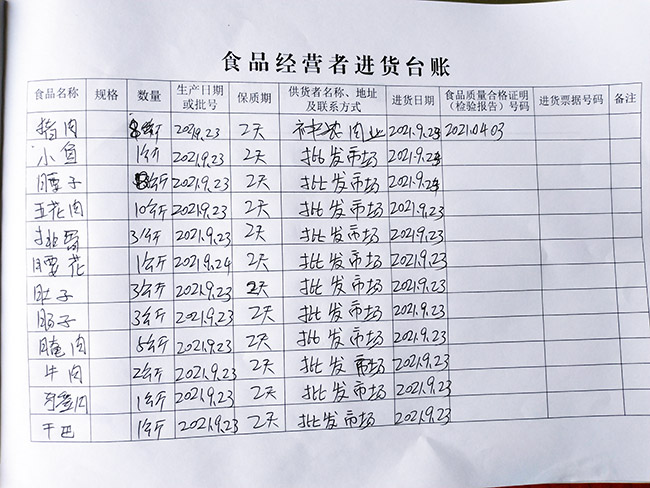 食品经营者进货台账
食品名称 规格 数量 生产日期或批号 保质期 供货者名称、地址及联系方式 进货日期 食品质量合格证明(检验报告)号码 进货票据号码 备注
猪肉 8公斤 2021.9.23 2天 神农肉业 2021.9.23 2021.04.03
小鱼 1公斤 2021.9.23 2天 批发市场 2021.9.24
腰子 公斤 2021.9.23 2天 批发市场 2021.9.24
五花肉 10公斤 2021.9.23 2天 批发市场 2021.9.23
排骨 3公斤 2021.9.23 2天 批发市场 2021.9.23
腰花 1公斤 2021.9.24 2天 批发市场 2021.9.23
肚子 3公斤 2021.9.23 2天 批发市场 2021.9.23
肠子 3公斤 2021.9.23 2天 批发市场 2021.9.23
腌肉 5公斤 2021.9.23 2天 批发市场 2021.9.23
牛肉 2公斤 2021.9.23 2天 批发市场 2021.9.23
1公斤 2021.9.23 2天 批发市场 2021.9.23
干巴 1公斤 2021.9.23 2天 批发市场 2021.9.23